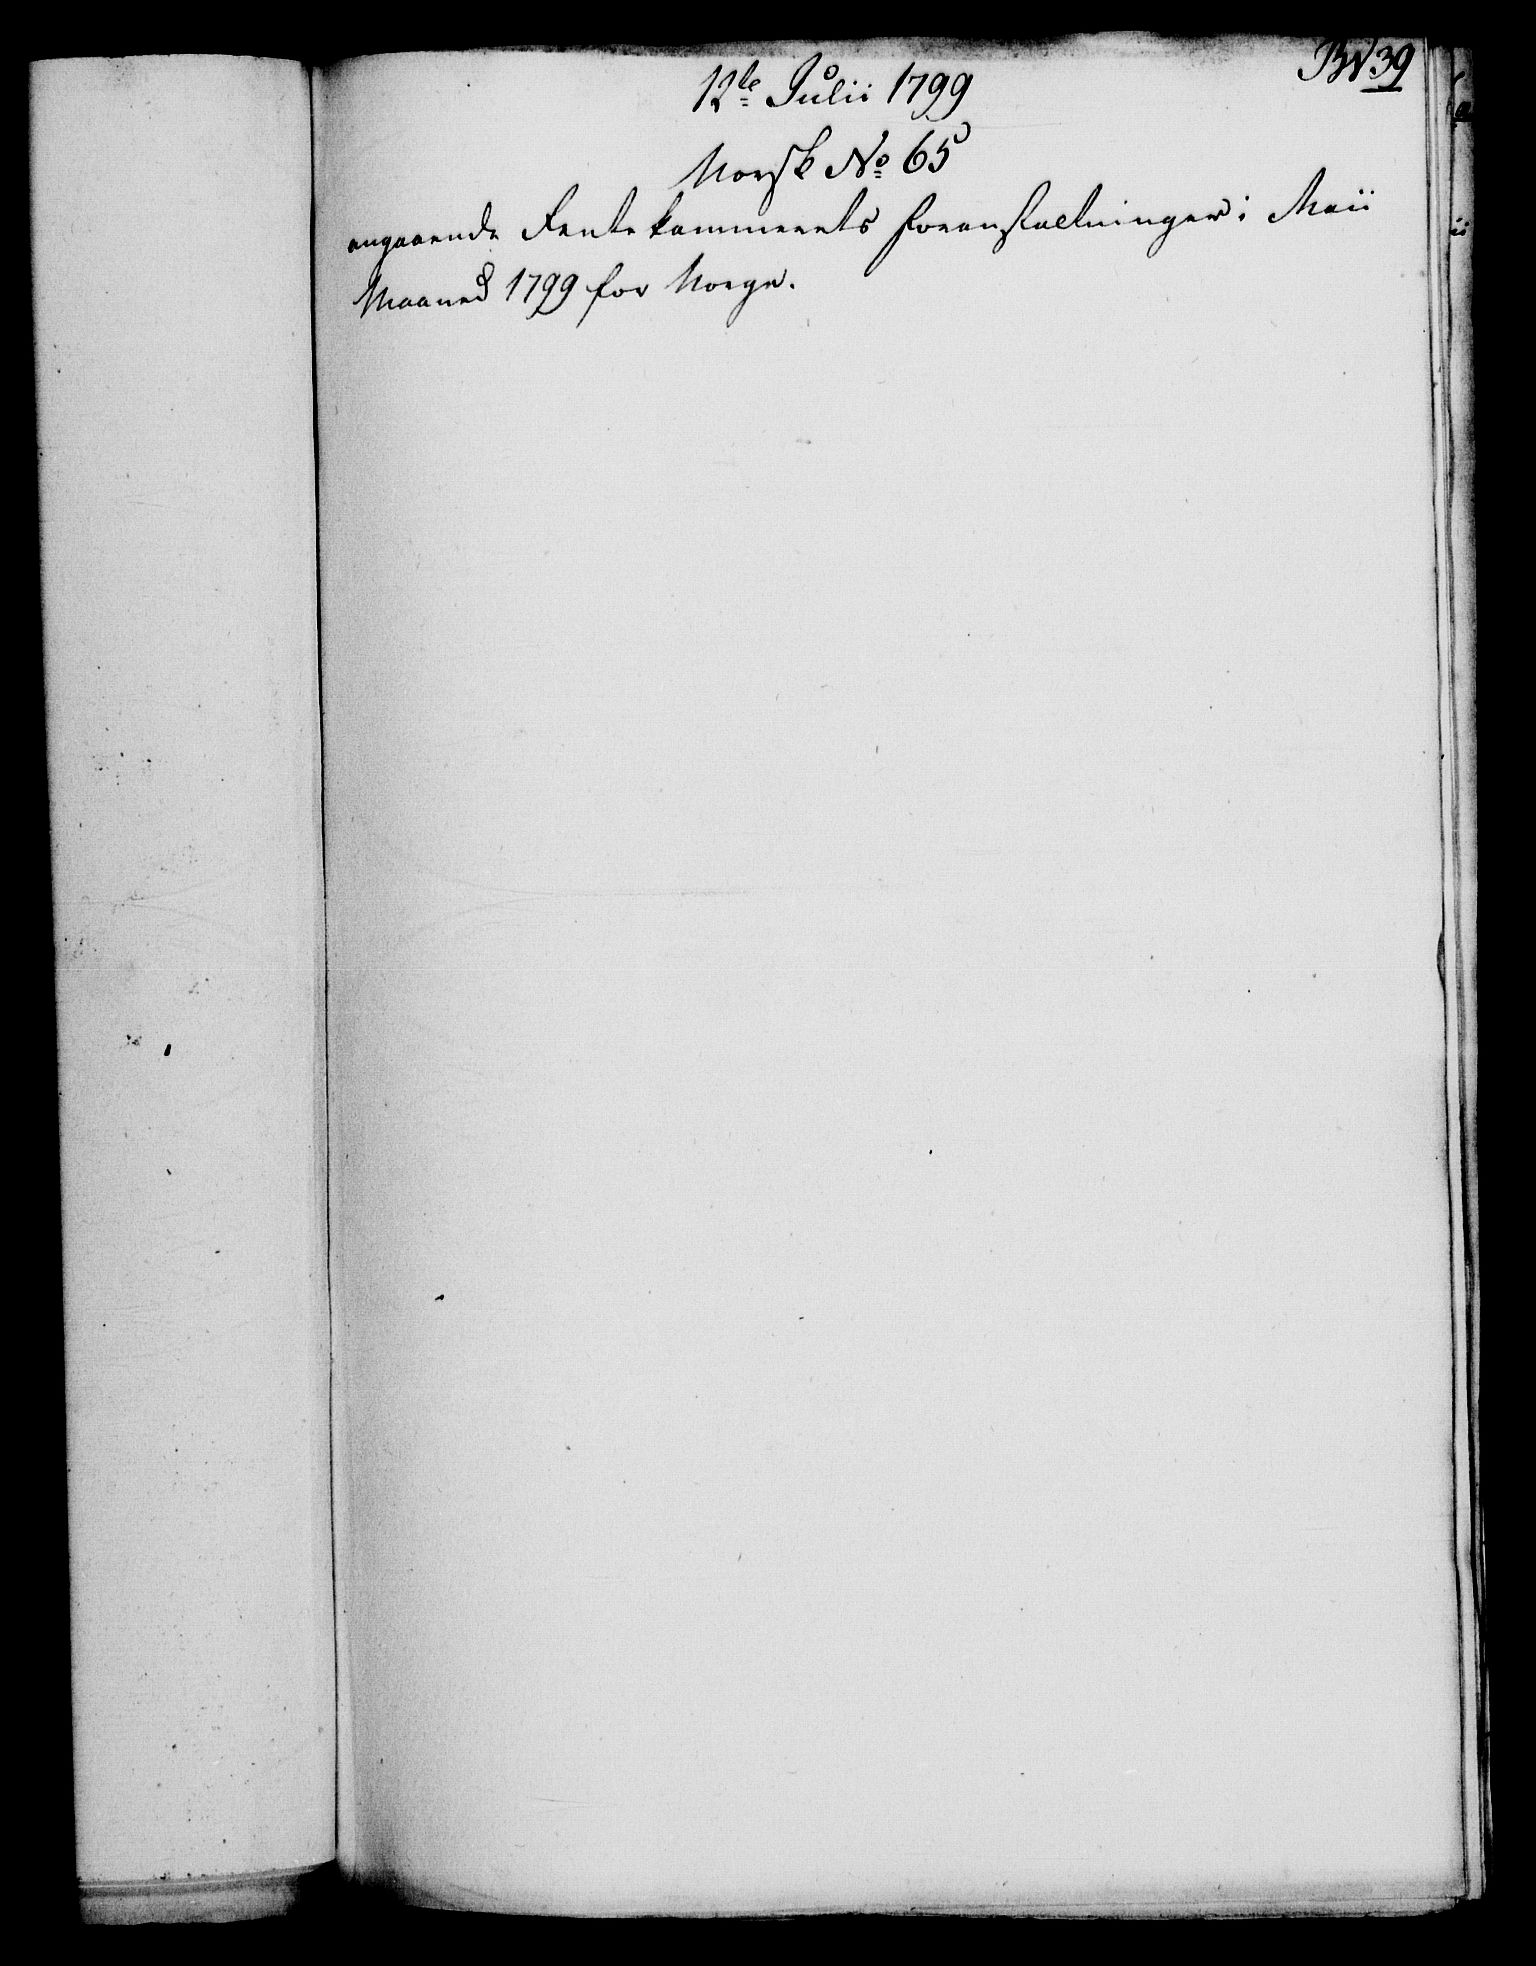 39
12te Julii 1799
Norsk No 65
angaaende Rentekammerets Foranstaltninger i Maii
Maaned 1799 for Norge.